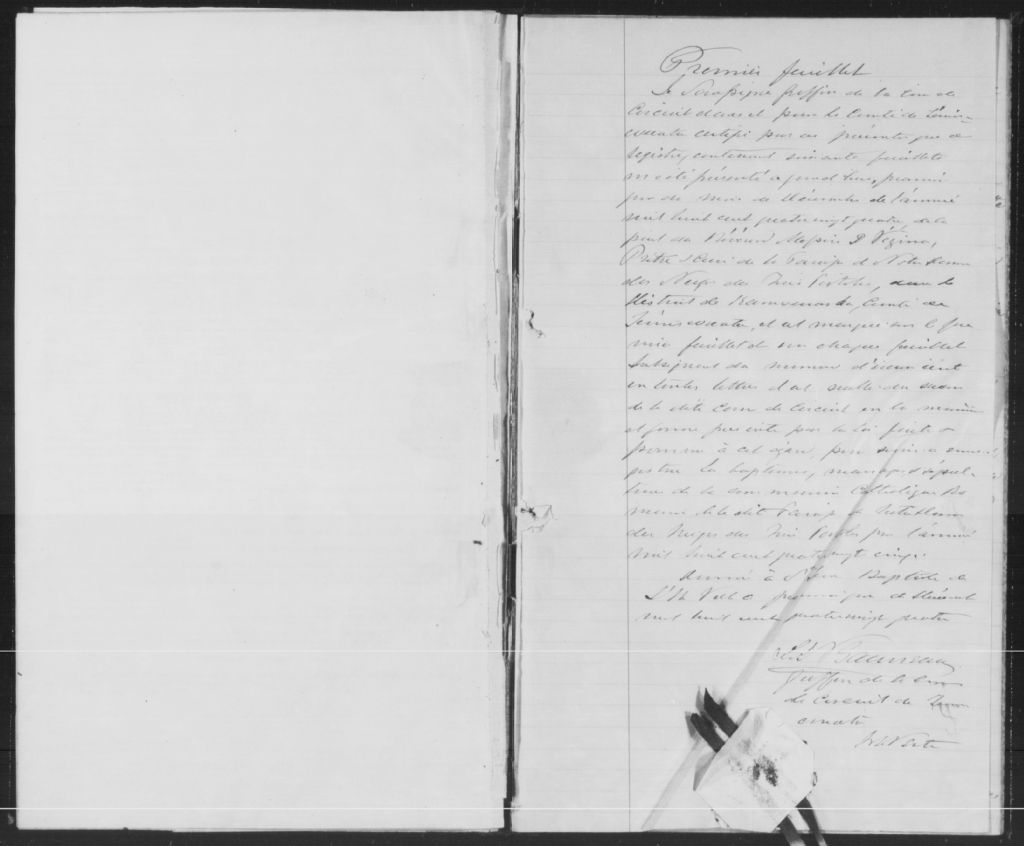 Premier feuillet
Je Soussigné Greffier de la Cour de
Circuit dans et pour le Comté de Témis-
couata certifie par ces présentes que ce
registre, contenant soixante feuillets
m'a été présenté aujourd'hui, premier
jour du mois de Décembre de l'année
mil huit cent quatre vingt quatre, de la
part du Révérend Messire Vézina,
Prêtre & Curé de la Paroisse de Notre Dame
des Neiges des Trois Pistoles, dans le
District de Kamouraska, Comté de
Témiscouata, et est marqué sur le pre
mier feuillet et sur chaque feuillet
subséquent du numéro d'icelui écrit
en toutes lettres et est scellé du sceau
de la dite Cour de Circuit en la manière
et forme prescrite par la loi faite &
pourvue à cet égard, pour servir à enre-
gistrer les baptêmes, mariages & sépul-
tures de la communion Catholique Ro
maine de la dite Paroisse de Notre Dame
des Neiges des Trois Pistoles pour l'année
mil huit cent quatre vingt cinq.
Donné à St Jean Baptiste de
L'Isle Verte ce premier jour de Décembre
mil huit cent quatre vingt quatre
Greffier de la Cour
de Circuit de Témis
couata
Isle Verte